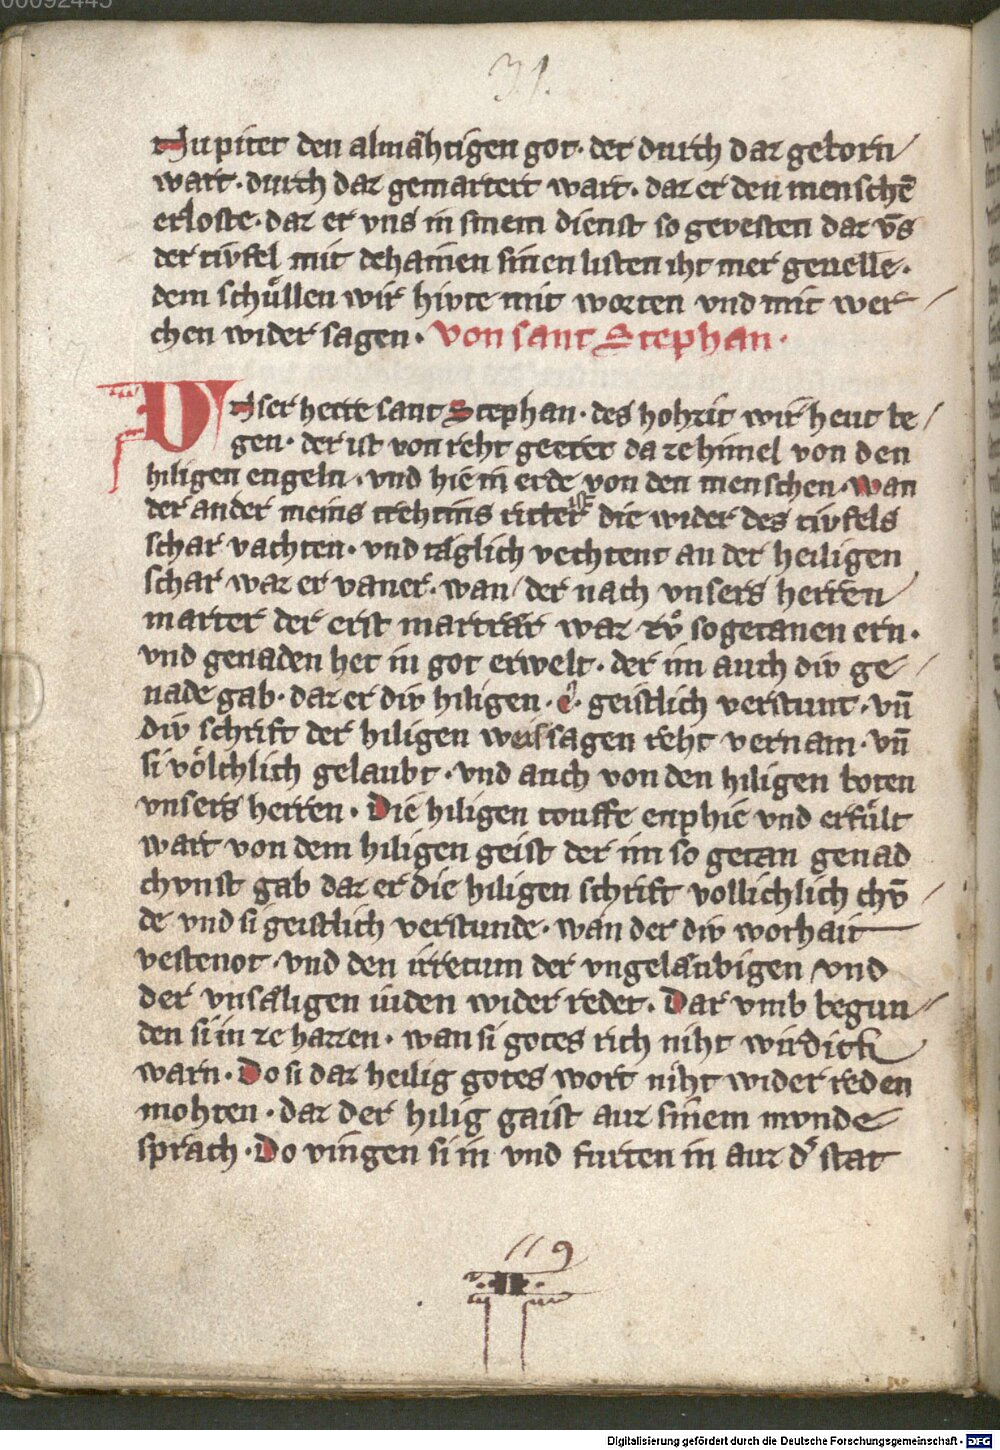 00092445
31.
Jupiter den almähtigen got· der durch daz geborn
wart· durch daz gemartert wart· daz er den menschē
erloste· daz er vns in sinem dienst so geuesten daz v̄s
der tivfel mit dehainen sinen listen iht mer geuelle·
dem schüllen wir hivte mit worten vnd mit wer
chen wider sagen· Von sant Stephan·
Vnser herre sant Stephan· des hohzit wir heut be
gen· der ist von reht geeret da ze himel von den
hiligen engeln· vnd hie in erde von den menschen· wan
der ander meins trehtins ritter die wider des tivfels
schar vachten· vnd täglich vechtent an der heiligen
schar waz er vaner· wan der nach vnsers herren
marter der erst marträr waz zv̊ sogetanen ern·
vnd genaden het in got erwelt· der im auch div ge
nade gab· daz er div hiligen· e· geistlich verstunt· vn̄
div schrift der hiligen weissagen reht vernam· vn̄
si völchlich gelaubt· vnd auch von den hiligen boten
vnsers herren· Die hiligen touffe enphie vnd erfült
wart von dem hiligen geist der im so getan genad
chvnst gab daz er die hiligen schrift vollichlich chv̄
de vnd si geistlich verstunde· wan der div worhait
vestenot· vnd den irretum der vngeläubigen vnd
der vnsäligen iuden wider redet· Dar vmb begun
den si in ze hazzen· wan si gotes rich niht wirdich
warn· Do si daz heilig gotes wort niht wider reden
mohten· daz der hilig gaist auz sinem mvnde
sprach· Do viengen si in vnd furten in auz d' stat
119
Digitalisierung gefördert durch die Deutsche Forschungsgemeinschaft - DFG